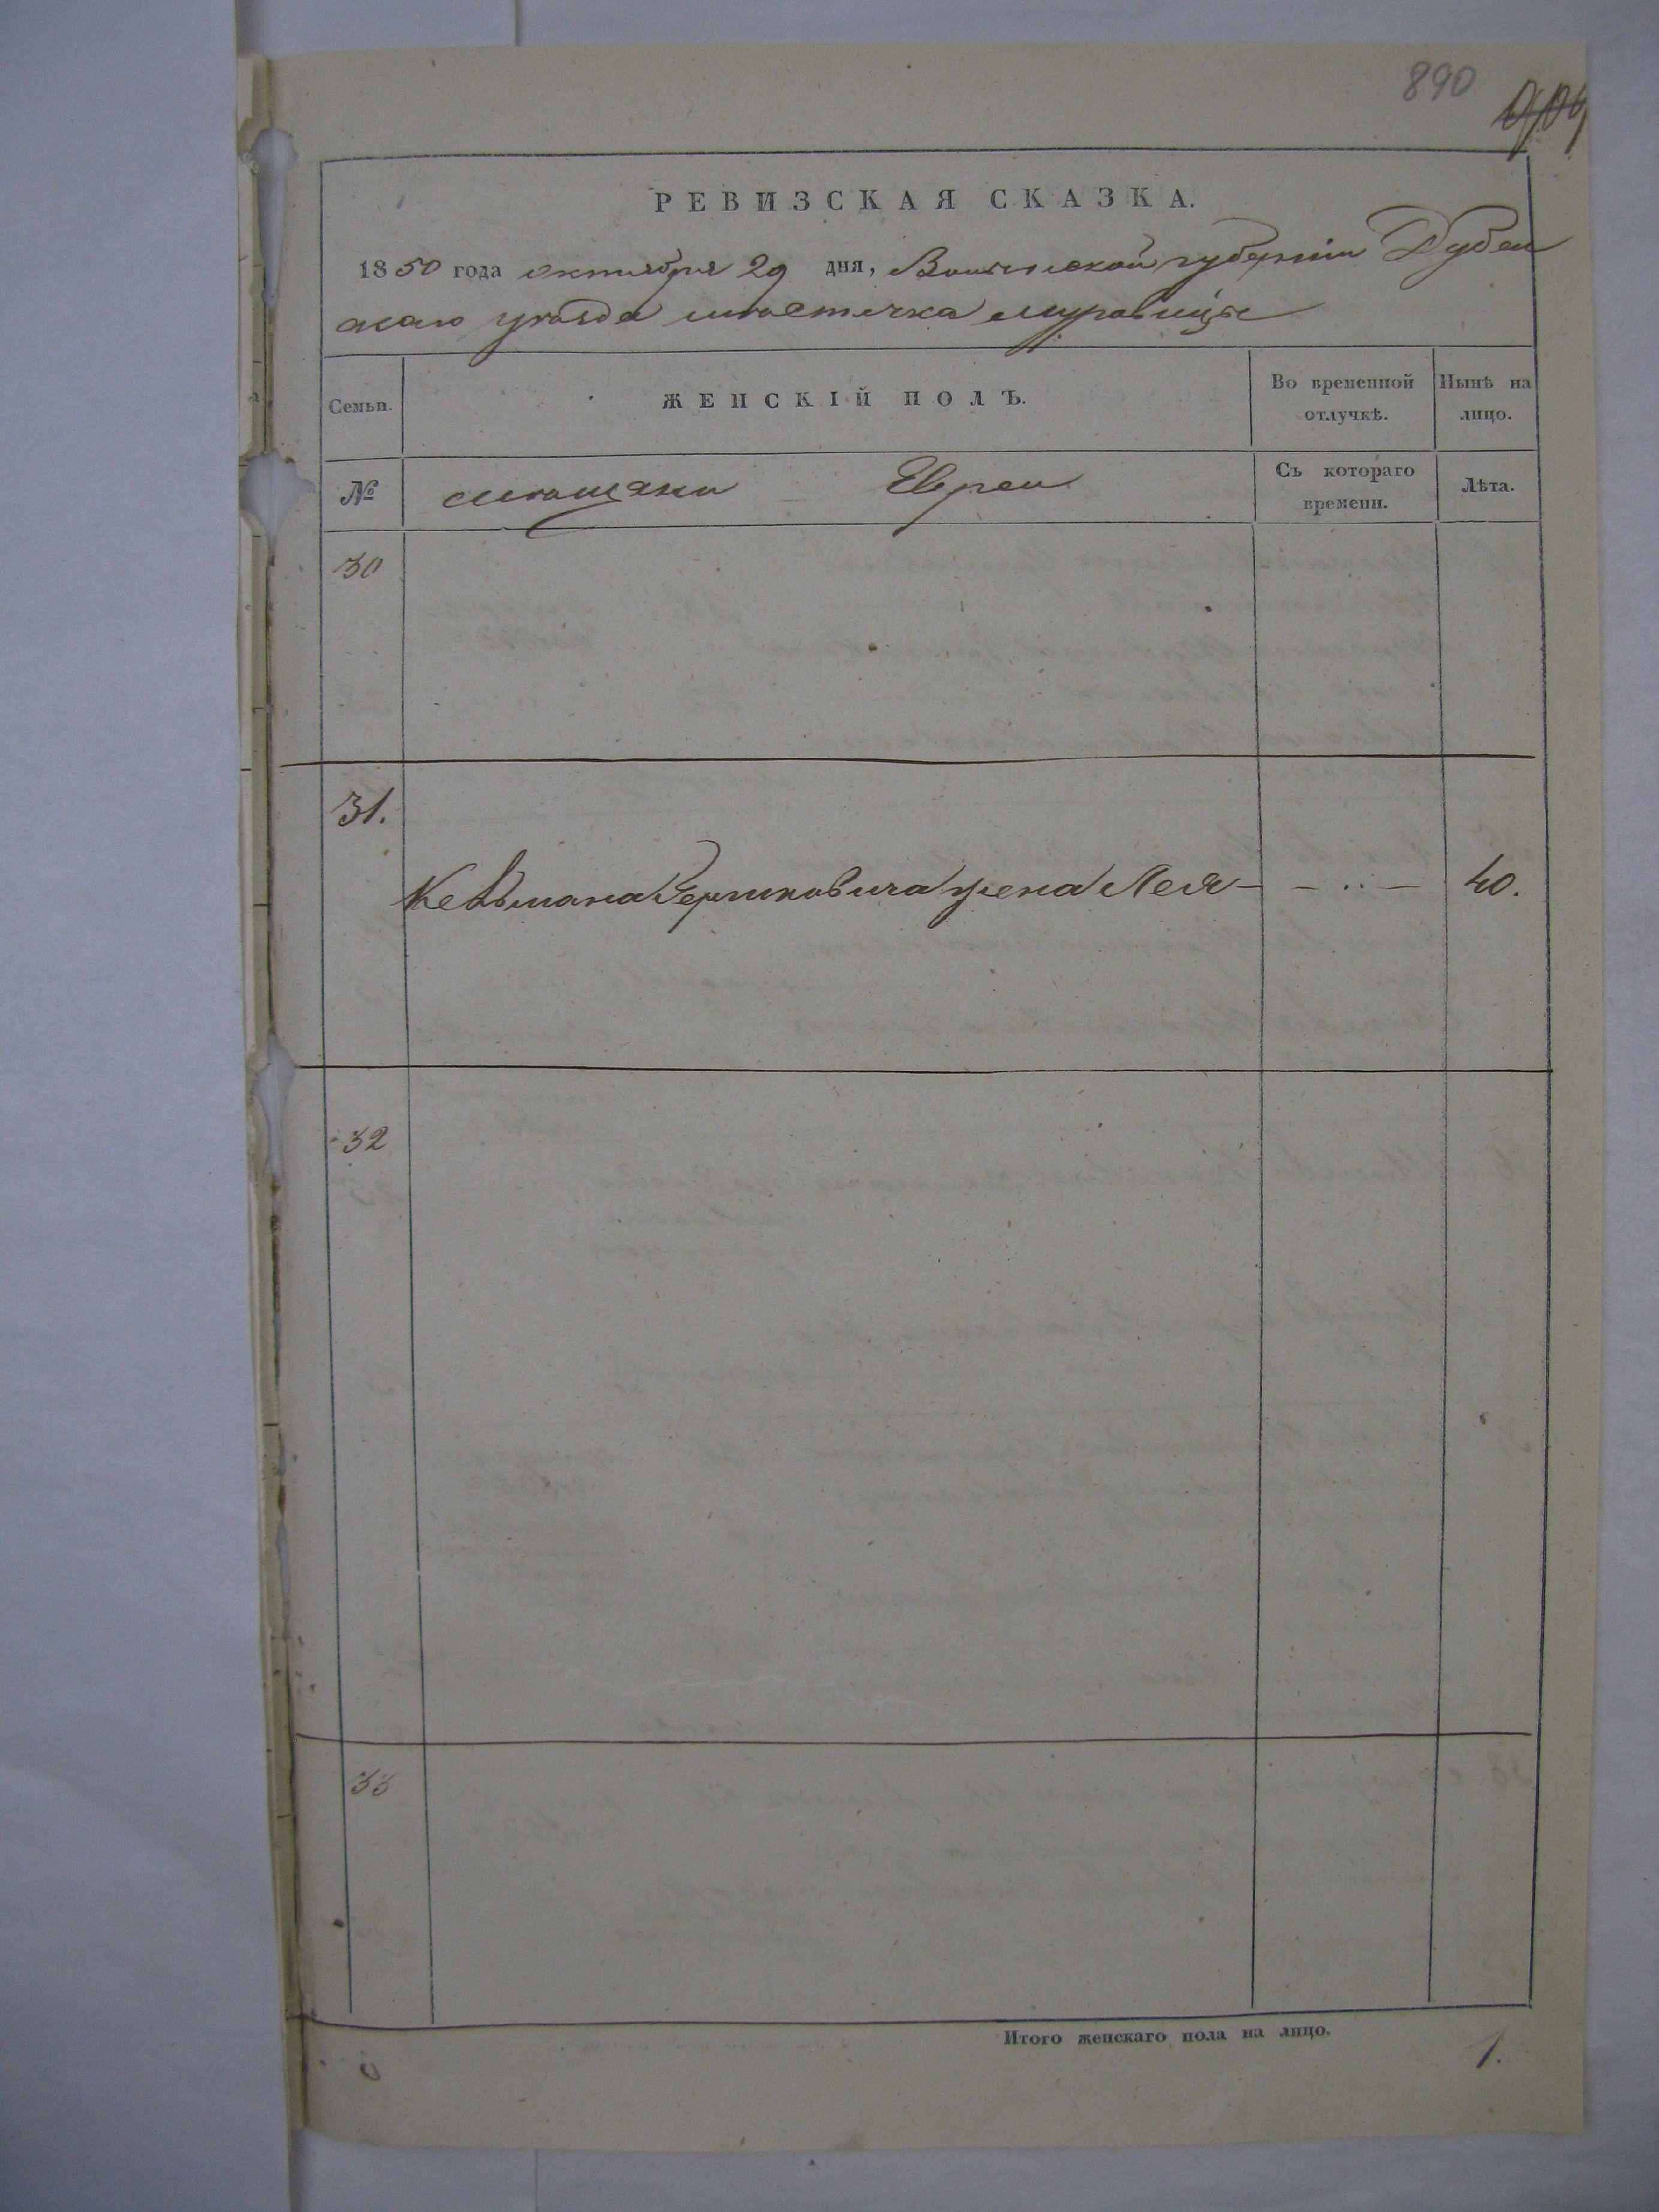 890
РЕВИЗСКАЯ СКАЗКА.
1850 года октября 29 дня, Волынской губерніи Дубен
скаго уѣзда мѣстечка Муравицы
Семьи. ЖЕНСКІЙ ПОЛЪ. Во временной отлучкѣ. Нынѣ на лицо.
№ мѣщане Евреи Съ котораго времени. Лѣта.
30
31.
Кельмана Берковича жена Лея - - .. - 40.
32
33
Итого женскаго пола на лицо. 1.